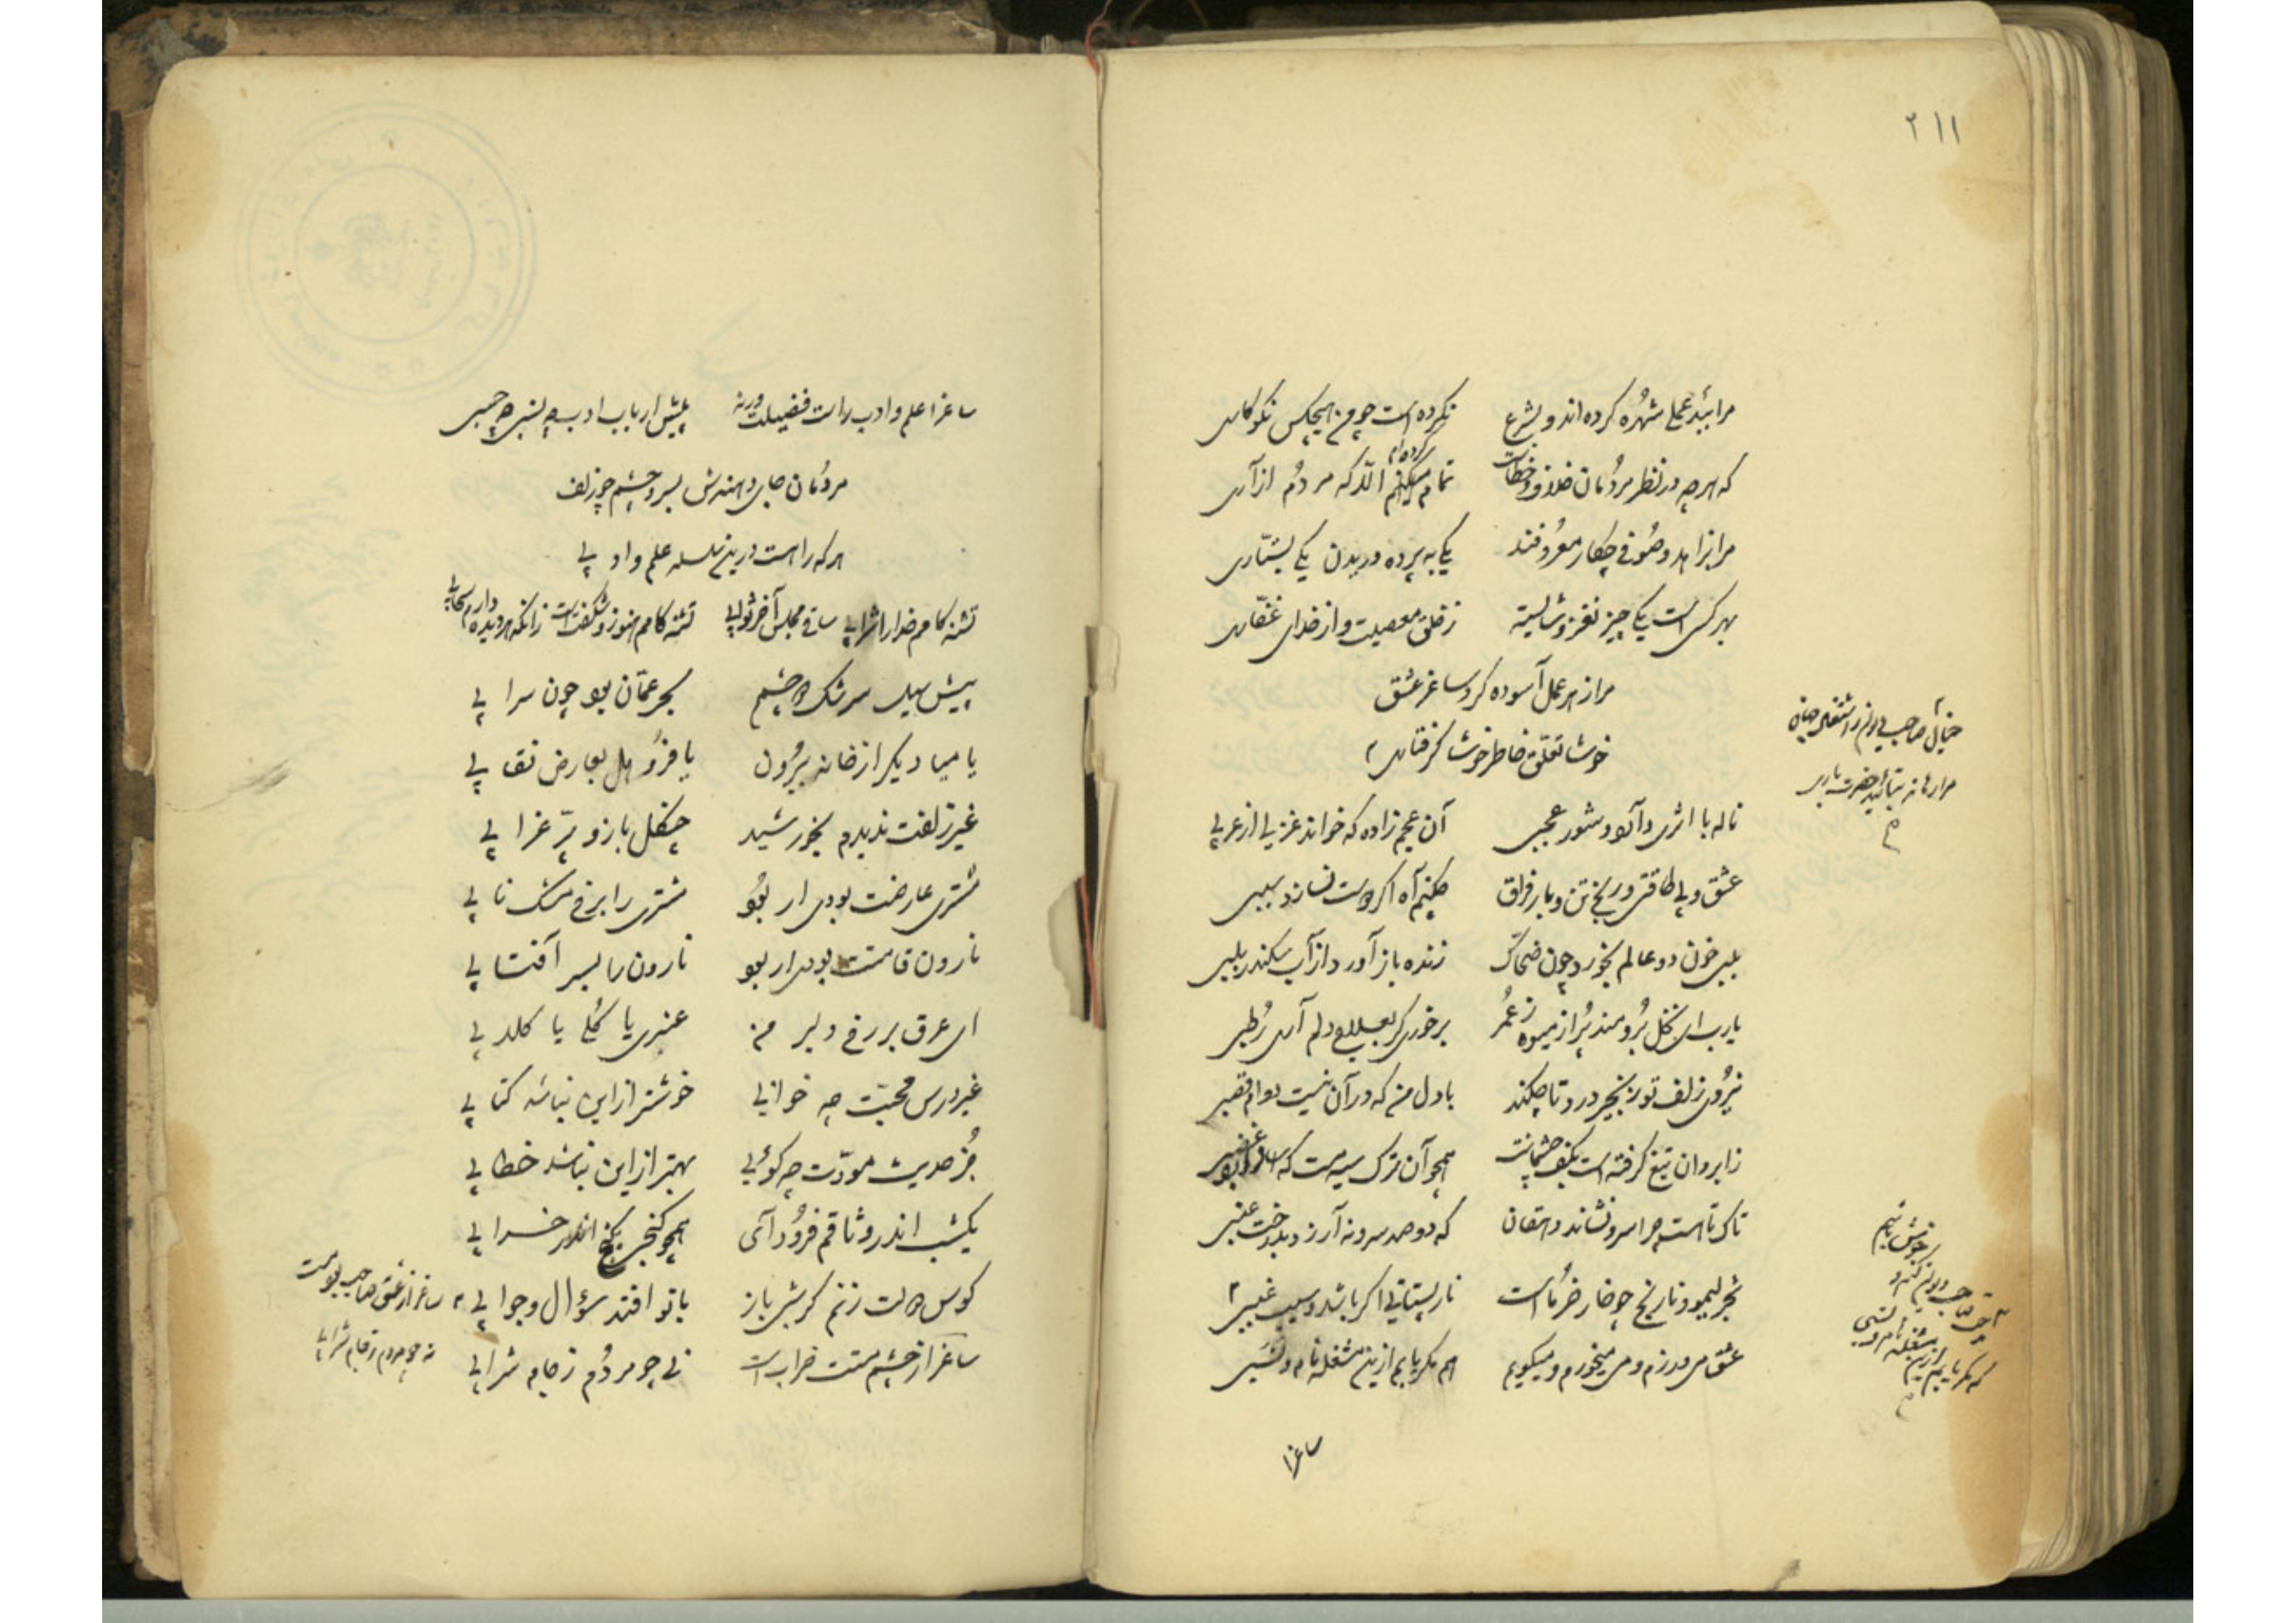 ۲۱۱
مرا ببد عملی شهره کرده اند و بشرع نکرده است چو من هیچکس نکوکاری
که هرچه در نظر مردمان خلاف و خطاست تمام میکنم الا که مردم ازاری
کرده ام
مرا بزاهد و صوفی چکار معروفند یکی به پرده دریدن یکی بستاری
بهر کس است یکی چیز نغز و شایسته ز خلق معصیت و از خدای غفاری
مرا ز هر عمل آسوده کرد ساغر عشق
خوشا تعلق خاطر خوشا گرفتاری
خیال صاحب دیوانم از شغل جهان
مرا رهاند بتائید حضرت باری
ناله با اثری دارد و شور عجبی آن عجم زاده که خواند غزلی از عربی
عشق و بی طاقتی و رنج تن و بار فراق چکنم آه اگر دوست نسازد سببی
بلبی خون دو عالم بخورد چون ضحاک زنده باز آورد از آب سکندر بلبی
یارب ای نخل برومند پر از میوه ز عمر برخوری گر دلم آری رطبی
نیروی زلف تو زنجیر درد تا چکند با دل من که در آن نیست
ز ابروان تیغ گرفته است بکف چشمانت همچو آن ترک سیه مست که
تاک تا هست چرا سرو نشاند دهقان که دو صد سرو نه آرزد بدرخت عنبی
شجر لیمو و نارنج چو خار خرماست نار پستانی اگر باشد و سیب غببی
عشق میورزم و می میخورم و میگویم هم مگر یابم ازین مشغله نام و نسبی
که مگر یابم ازین مشغله نام و نسبی
ساغرا
ساغرا علم و ادب راست فضیلت ورنه پیش ارباب ادب چه نسبی چه حسبی
مردمان جای دهندش بسر و چشم چو زلف
هرکه را هست درین سلسله علم و ادبی
تشنه کامم خدا را شرابی ساقی مجلس آخر ثوابی تشنه کامم هنوز و شگفت است زانکه هر دیده دارد سحابی
پیش سیل سرشک دو چشمم بحر عمان بود چون سرابی
یا میا دیگر از خانه بیرون یا فرو هل بعارض نقابی
غیر زلفت ندیدم بخورشید چنگل باز و پر غرابی
مشتری عارضت بودی ار بود مشتری را برخ مشک نابی
نارون قامتت بودی ار بود نارون را بسر آفتابی
ای عرق بر رخ دلبر من عنبری یا گلی یا گلابی
غیر درس محبت چه خوانی خوشتر از این نباشد کتابی
جز حدیث مودت چه گوئی بهتر از این نباشد خطابی
یکشب اندر وثاقم فرود آی همچو گنجی بکنج اندر خرابی
کوس دولت زنم گر شبی باز با تو افتد سؤال و جوابی
ساغر از عشق صاحب بود مست
نه چو مردم ز جام شرابی
ساغر از چشم مستت خراب است نی چو مردم ز جام شرابی